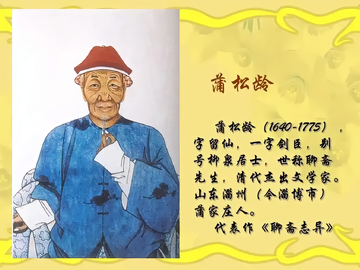 蒲松龄
蒲松龄（1640-1775），
字留仙，一字剑臣，别
号柳泉居士，世称聊斋
先生，清代杰出文学家。
山东淄州（今淄博市）
蒲家庄人。
代表作《聊斋志异》